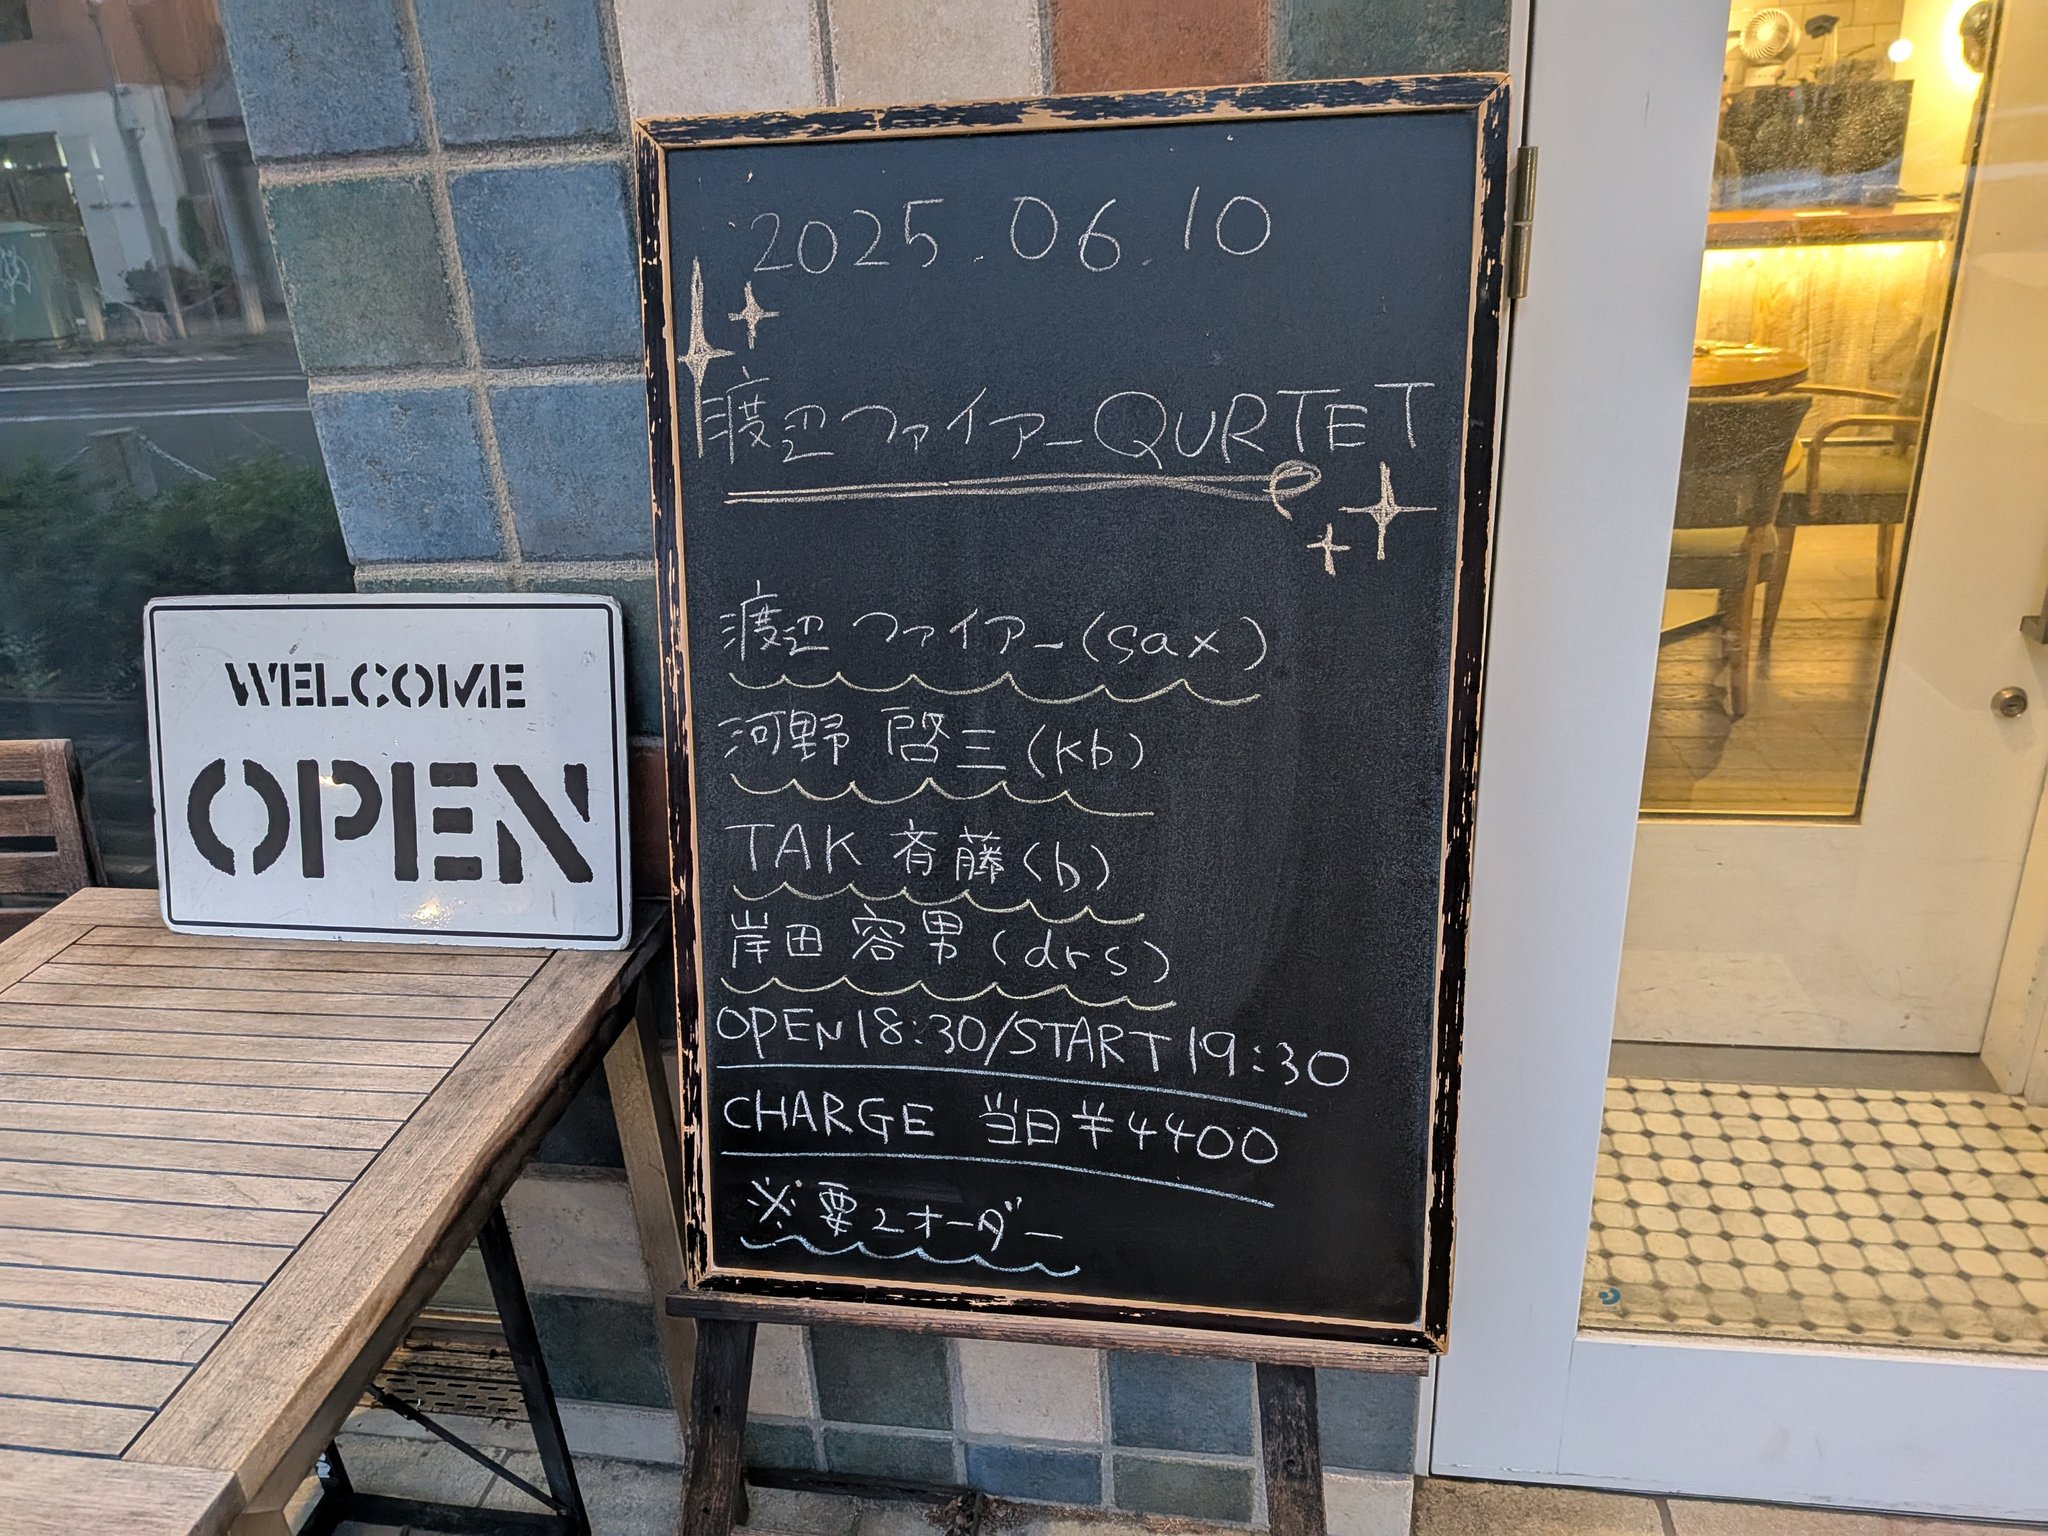 WELCOME
OPEN
2025.06.10
渡辺ファイアーQURTET
渡辺 ファイアー(sax)
河野 啓三(kb)
TAK 斉藤(b)
岸田 容男(drs)
OPEN18:30/START19:30
CHARGE 当日¥4400
※要2オーダー